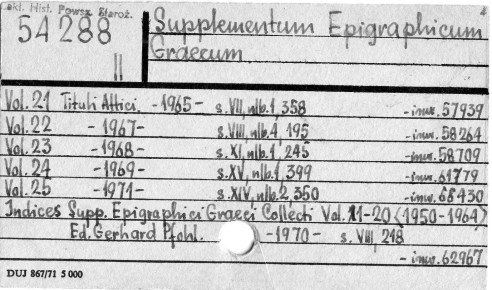 Zakł. Hist. Powsz. Staroż. 4
54288
II
Supplementum Epigraphicum
Graecum
Vol. 21 Tituli Attici. -1965- s. VII, nlb. 1, 358 -inw. 57939
Vol. 22 -1967- s. VIII, nlb. 1, 195 -inw. 58264
Vol. 23 -1968- s. XI, nlb. 1, 245 -inw. 58709
Vol. 24 -1969- s. XV, nlb. 1, 399 -inw. 61779
Vol. 25 -1971- s. XIV, nlb. 2, 350 -inw. 68430
Indices Supp. Epigraphici Graeci Collecti Vol. 11-20 (1950-1964)
Ed. Gerhard Pfohl. -1970- s. VIII, 248
-inw. 62967
DUJ 867/71 5 000